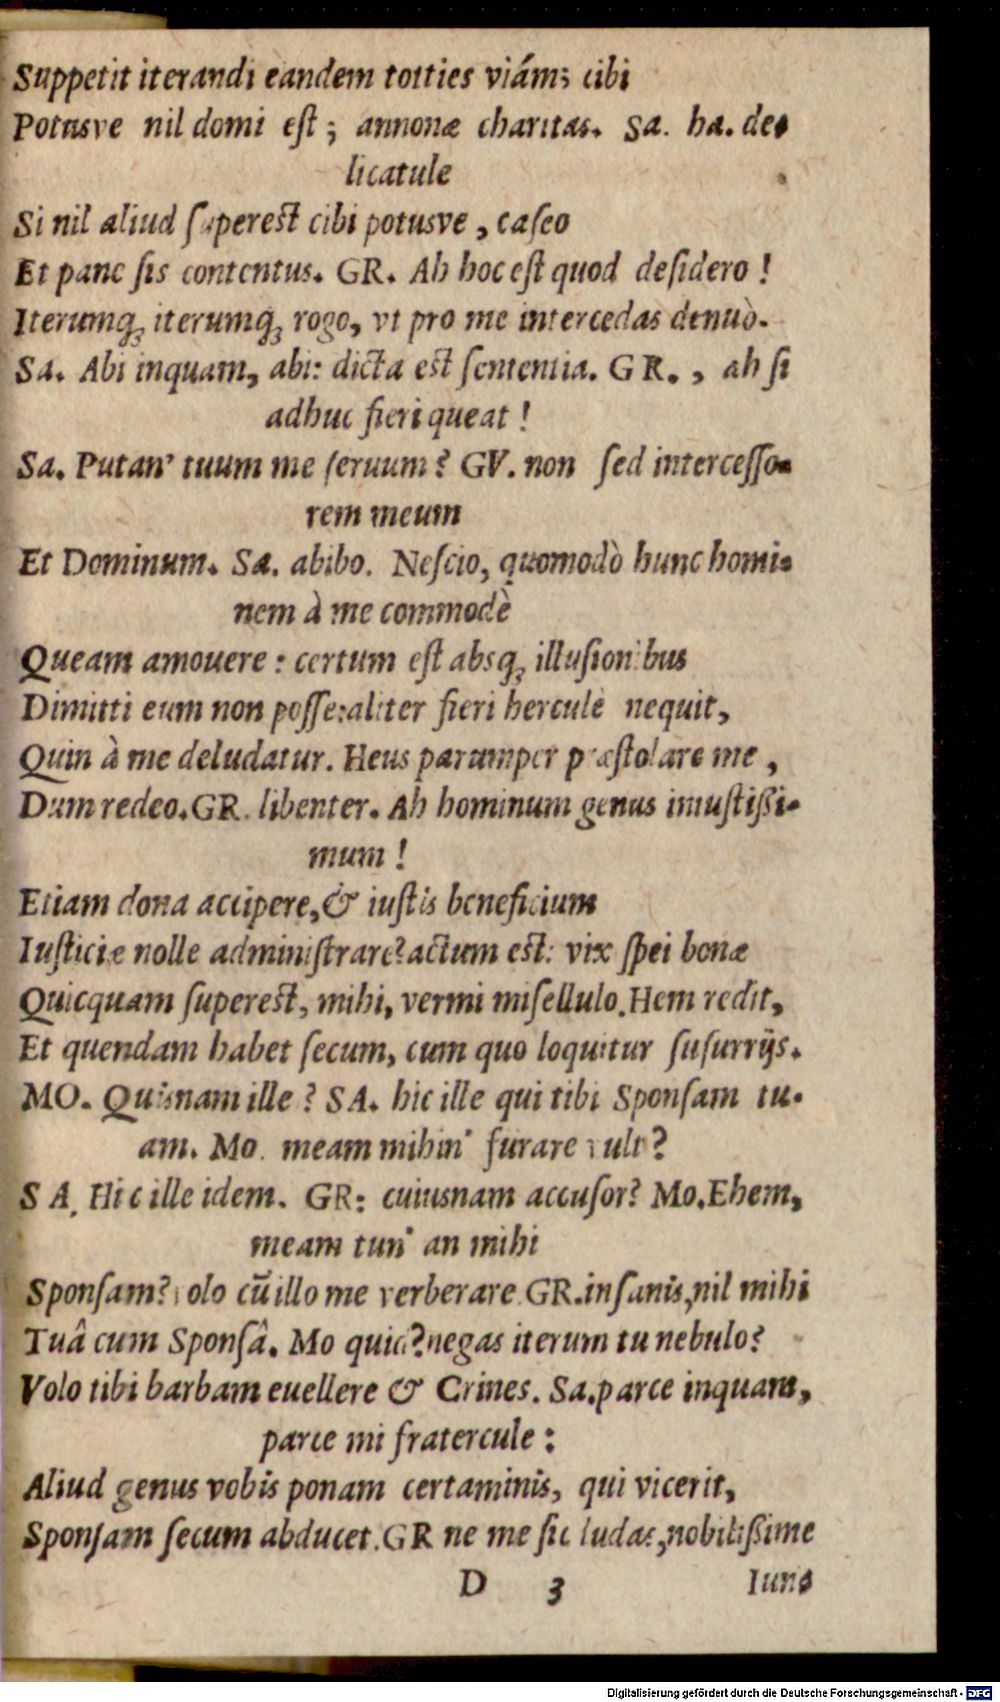 Suppetit iterandi eandem totties viám; cibi
Potusve nil domi eſt; annonæ charitas. Sa. ha. de-
licatule
Si nil aliud ſuperest cibi potusve, caſeo
Et pane ſis contentus. GR. Ah hoc eſt quod deſidero!
Iterumq; iterumq; rogo, vt pro me intercedas denuò.
Sa. Abi inquam, abi: dicta est ſententia. GR., ah ſi
adhuc fieri queat!
Sa. Putan' tuum me ſeruum? GV. non ſed interceſſo-
rem meum
Et Dominum. Sa. abibo. Neſcio, quomodò hunc homi-
nem à me commodè
Queam amouere: certum eſt absq; illuſionibus
Dimitti eum non poſſe: aliter fieri hercule nequit,
Quin à me deludatur. Heus parumper præſtolare me,
Dum redeo. GR. libenter. Ah hominum genus iniuſtißi-
mum!
Etiam dona accipere, & iuſtis beneficium
Iuſticiæ nolle adminiſtrare? actum est: vix ſpei bonæ
Quicquam ſuperest, mihi, vermi miſellulo. Hem redit,
Et quendam habet ſecum, cum quo loquitur ſuſurrijs.
MO. Quisnam ille? SA. hic ille qui tibi Sponſam tu-
am. Mo. meam mihin' furare vult?
SA. Hic ille idem. GR: cuiusnam accuſor? Mo. Ehem,
meam tun' an mihi
Sponſam? volo cũ illo me verberare. GR. inſanis, nil mihi
Tuâ cum Sponſâ. Mo quid? negas iterum tu nebulo?
Volo tibi barbam euellere & Crines. Sa. parce inquam,
parce mi fratercule:
Aliud genus vobis ponam certaminis, qui vicerit,
Sponſam ſecum abducet. GR ne me ſic ludas, nobilißime
D 3 Iune
Digitalisierung gefördert durch die Deutsche Forschungsgemeinschaft - DFG